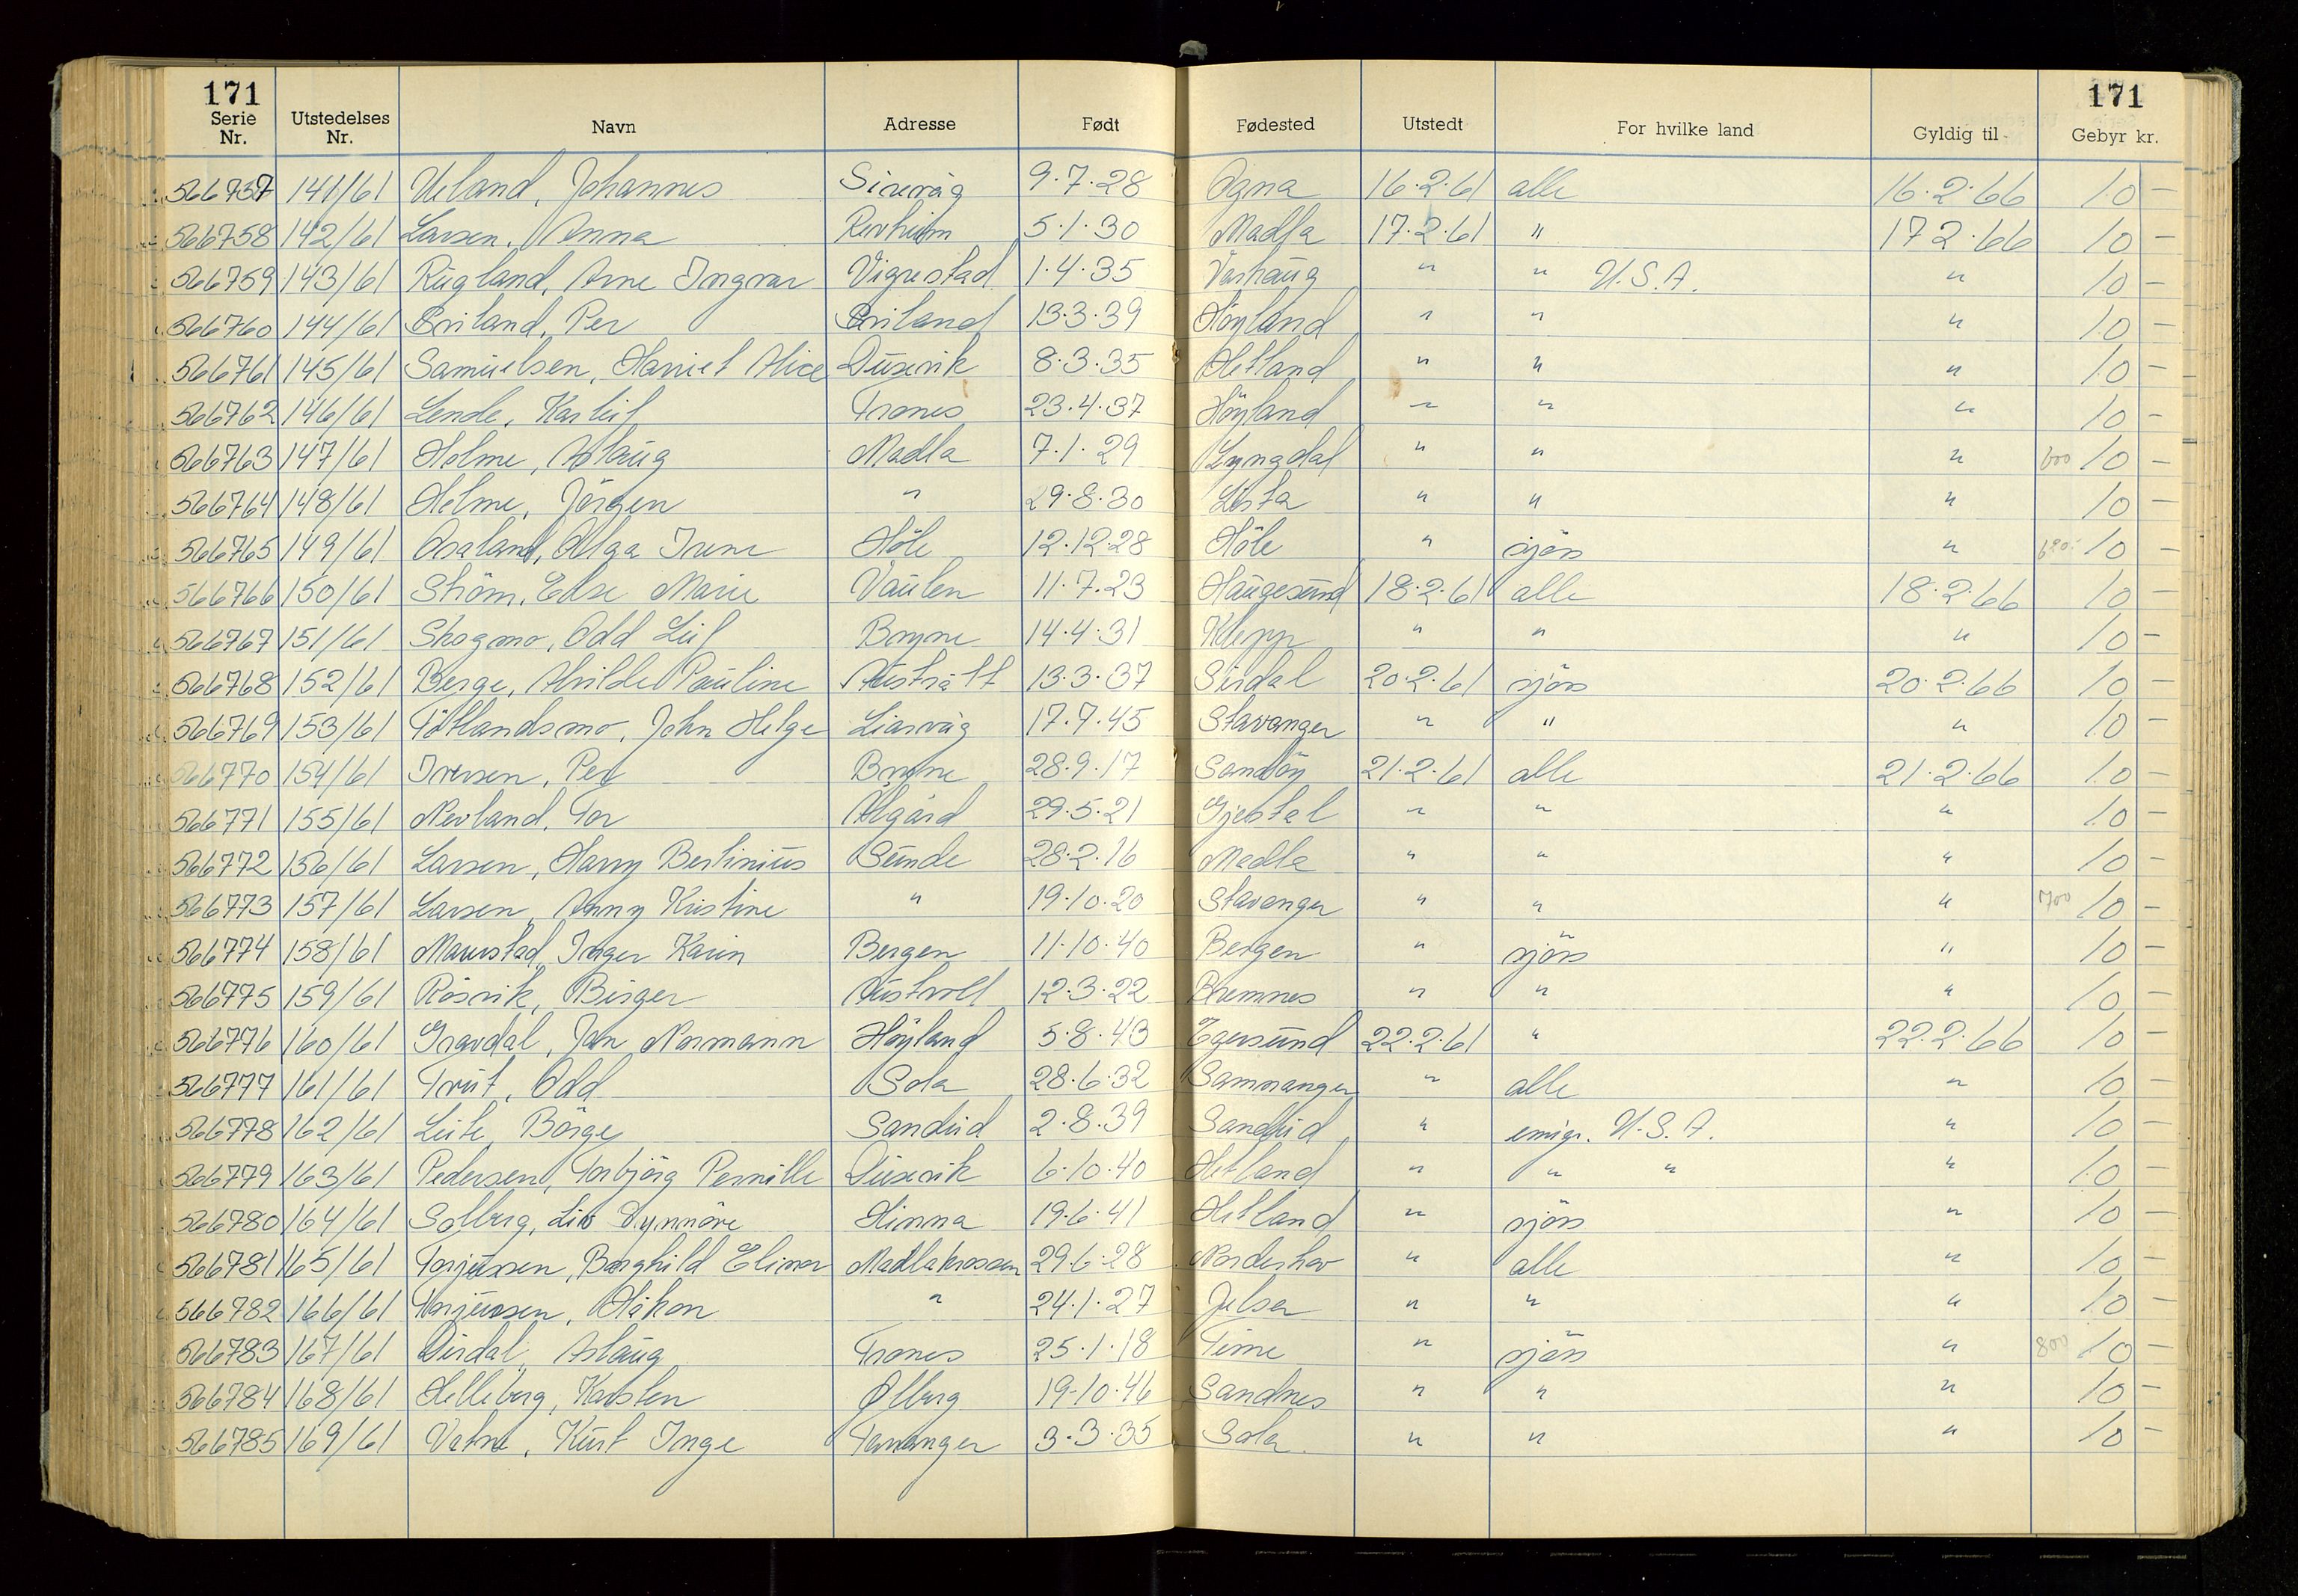 171 171
Serie Nr. Utstedelses Nr. Navn Adresse Født Fødested Utstedt For hvilke land Gyldig til Gebyr kr.
566757 141/61 Ueland, Johannes Sirevåg 9.7.28 Ogna 16.2.61 alle 16.2.66 10 –
566758 142/61 Larsen, Anna Revheim 5.1.30 Madla 17.2.61 " 17 2.66 10 –
566759 143/61 Rugland, Arne Ingvar Vigrestad 1.4.35 Varhaug " " U.S.A. " 10 –
566760 144/61 Per 13.3.39 Höyland " " " 10 –
566761 145/61 Samuelsen, Harriet Alice Dusevik 8.3.35 Hetland " " " 10 –
566762 146/61 Lende, Karleif Trones 23.4.37 Höyland " " " 10 –
566763 147/61 Holme, Aslaug Madla 7.1.29 Lyngdal " " " 600 10 –
566764 148/61 Helme, Jörgen " 29.8.30 Lista " " " 10 –
566765 149/61 Osaland, Olga Irene Höle 12.12.28 Höle " sjøss " 10 –
566766 150/61 Ström, Else Marie Vaulen 11.7.23 Haugesund 18.2.61 alle 18.2.66 10 –
566767 151/61 Skogmo, Odd Leif Bryne 14.4.31 Klepp " " " 10 –
566768 152/61 Berge, Alvilde Pauline Austrått 13.3.37 Sirdal 20.2.61 sjöss 20.2.66 10 –
566769 153/61 Tötlandsmo, John Helge Liarvåg 17.7.45 Stavanger " " " 10 –
566770 154/61 Iversen, Per Bryne 28.9.17 Sandöy 21.2.61 alle 21.2.66 10 –
566771 155/61 Nevland, Tor Ålgård 29.5.21 Gjestal " " " 10 –
566772 156/61 Larsen, Harry Bertinius Sunde 28.2.16 Madla " " " 10 –
566773 157/61 Larsen, Anny Kristine " 19.10.20 Stavanger " " " 700 10 –
566774 158/61 Maurstad, Inger Karin Bergen 11.10.40 Bergen " sjöss " 10 –
566775 159/61 Rösvik, Birger Austvoll 12.3.22 Bremnes " " " 10 –
566776 160/61 Gravdal, Jan Normann Höyland 5.8.43 Egersund 22.2.61 " 22.2.66 10 –
566777 161/61 Odd Sola 28.6.32 Samnanger " alle " 10 –
566778 162/61 Leite, Börge Sandeid 2.8.39 Sandeid " emigr. U.S.A. " 10 –
566779 163/61 Pedersen, Torbjörg Pernille Dusevik 6.10.40 Hetland " " " " 10 –
566780 164/61 Solberg, Liv Synnöve Hinna 19.6.41 Hetland " sjöss " 10 –
566781 165/61 Torjussen, Borghild Elinor Madlakrossen 29.6.28 Norderhov " alle " 10 –
566782 166/61 Torjussen, Håkon " 24.1.27 Jelsa " " " 10 –
566783 167/61 Dirdal, Aslaug Trones 25.1.18 Time " sjöss " 800 10 –
566784 168/61 Helleberg, Karsten Ølberg 19.10.46 Sandnes " " " 10 –
566785 169/61 Vatne, Kurt Inge Tananger 3.3.35 Sola " " " 10 –